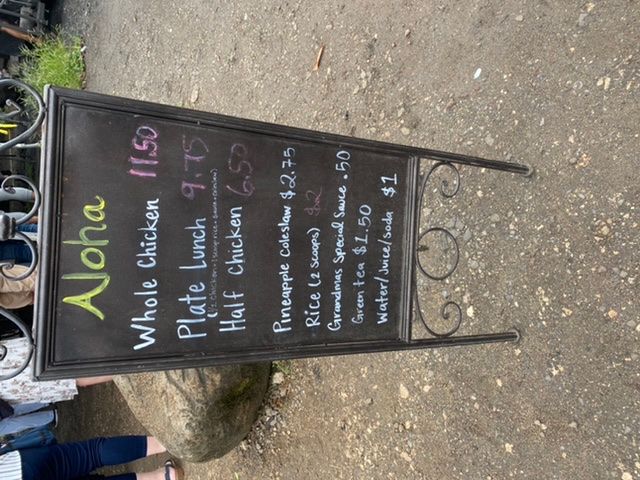 Aloha
Whole Chicken 11.50
Plate Lunch 9.75
(½ chicken + 1 scoop rice + sauce + coleslaw)
Half chicken 6.50
Pineapple Coleslaw $2.75
Rice (2 scoops) $2
Grandmas Special Sauce .50
Green tea $1.50
Water/Juice/Soda $1